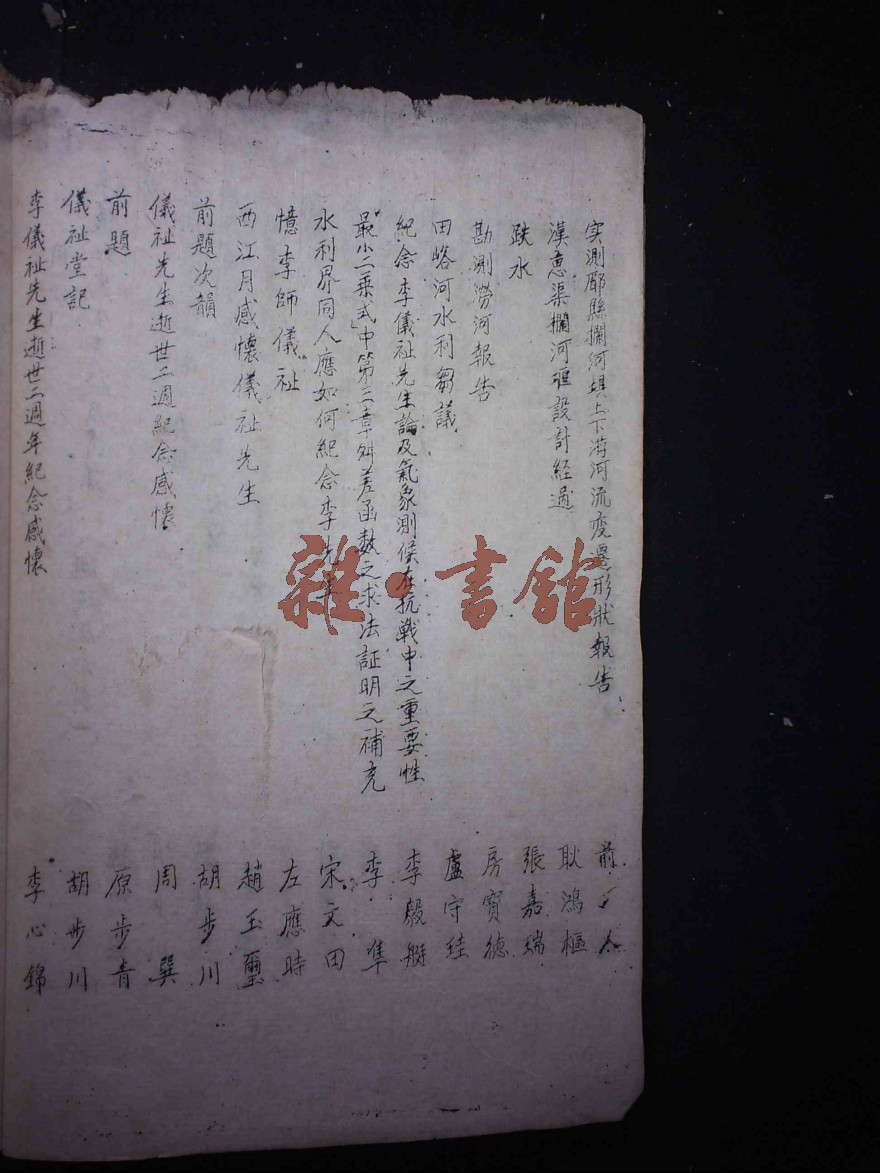 实測郿縣攔河埧上下游河流变遷形狀報告 前人
漢惠渠攔河堰設計経過 耿鴻樞
跌水 張嘉瑞
勘測澇河報告 房寶德
田峪河水利芻議 盧守珪
紀念李儀祉先生論及氣象測候在抗戰中之重要性 李毅艇
「最小二乘式」中第三章舛差函数之求法証明之補充 李隼
水利界同人應如何紀念李先生 宋文田
憶李師儀祉 左應時
西江月感懷儀祉先生 趙玉璽
前題次韻 胡步川
儀祉先生逝世二週紀念感懷 周巽
前題 原步青
儀祉堂記 胡步川
李儀祉先生逝世二週年紀念感懷 李心錦
雜·書館